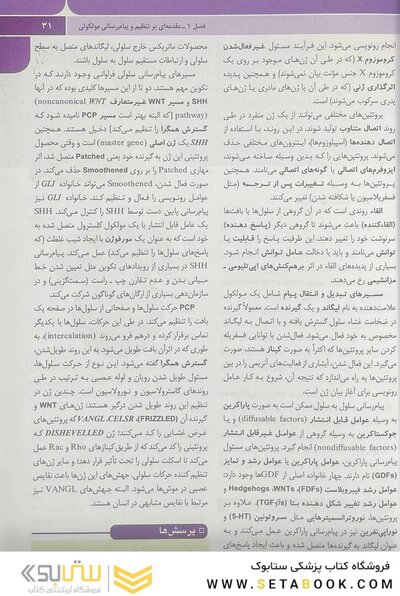 فصل ۱ ـ مقدمه‌ای بر تنظیم و پیام‌رسانی مولکولی
۳۱
انجام رونویسی می‌شود. این فرآیند مسئول غیرفعال‌شدن
کروموزوم X (که در طی آن ژن‌های موجود بر روی یک
کروموزوم X جنس مؤنث بیان نمی‌شوند) و همچنین پدیده
اثرگذاری ژنی (که در طی آن یا ژن‌های مادری یا ژن‌های
پدری سرکوب می‌شوند) است.
پروتئین‌های مختلفی می‌توانند از یک ژن منفرد در طی
روند اتصال متناوب تولید شوند. در این روند، با استفاده از
اتصال دهنده‌ها (اسپلئوزوم‌ها)، اینترون‌های مختلفی حذف
می‌شوند. پروتئین‌هایی را که بدین وسیله ساخته می‌شوند،
ایزوفرم‌های اتصالی یا گونه‌های اتصالی می‌نامند. همچنین
پروتئین‌ها به وسیله تغییرات پس از ترجمه (مثل
فسفریلاسیون یا شکافته شدن) تغییر می‌کنند.
القاء روندی است که در آن گروهی از سلول‌ها یا بافت‌ها
(القاءکننده) باعث می‌شوند تا گروهی دیگر (پاسخ دهنده)
سرنوشت خود را تغییر دهند. این ظرفیت پاسخ را قابلیت یا
توان می‌نامند و باید با دخالت عامل توانش انجام شود.
بسیاری از پدیده‌های القاء در اثر برهم‌کنش‌های اپی‌تلیومی ـ
مزانشیمی رخ می‌دهند.
مسیرهای تبدیل و انتقال پیام شامل یک مولکول
علامت‌دهنده به نام لیگاند و یک گیرنده است. معمولاً گیرنده
در ضخامت غشاء سلول گسترش یافته و با اتصال به لیگاند
مخصوص به خود فعال می‌شود. فعال‌شدن با توانایی فسفریله
کردن سایر پروتئین‌ها که اکثراً به صورت کیناز هستند، صورت
می‌گیرد. این فعال شدن، آبشاری از فعالیت‌های آنزیمی را در بین
پروتئین‌ها به راه می‌اندازد که نتیجه آن، شروع به کار عامل
رونویسی برای آغاز بیان ژن است.
پیام‌رسانی سلول به سلول ممکن است به صورت پاراکرین
به وسیله عوامل قابل انتشار (diffusable factors) و یا
جوکستاکرین به وسیله گروهی از عوامل غیرقابل انتشار
(nondiffusable factors) انجام گیرد. پروتئین‌های مسئول
پیام‌رسانی پاراکرین، عوامل پاراکرین یا عوامل رشد و تمایز
(GDFs) نام دارند. چهار خانواده اصلی از GDFها وجود دارد:
عوامل رشد فیبروبلاست (FDFs)، WNTs، Hedgehogs و
عوامل رشد تغییر شکل دهنده بتا (TGF-βs). علاوه بر
پروتئین‌ها، نوروترانسمیترهایی مثل سروتونین (5-HT) و
نوراپی‌نفرین نیز در پیام‌رسانی پاراکرین نقش دارند و به
عنوان لیگاند به گیرنده‌ها متصل شده و باعث ایجاد پاسخ‌های
محصولات ماتریکس خارج سلولی، لیگاندهای متصل به سطح
سلولی و ارتباطات مستقیم سلول به سلول باشند.
مسیرهای پیام‌رسانی سلولی فراوانی وجود دارند که در
تکوین مهم هستند. دو تا از مسیرهای کلیدی بوده که در آنها
SHH و مسیر WNT غیرمتعارف (noncanonical WNT
pathway) (که البته بهتر است مسیر PCP نامیده شود که
گسترش همگرا را تنظیم می‌کند) دخیل هستند. همچنین
SHH یک ژن اصلی (master gene) است و وقتی محصول
پروتئینی این ژن به گیرنده خود یعنی Patched متصل شد، اثر
مهاری Patched را بر روی Smoothened حذف می‌کند. در
صورت فعال شدن، Smoothened می‌تواند خانواده GLI از
عوامل رونویسی را فعال و تنظیم کند. خانواده GLI نیز
پیام‌رسانی پایین دست توسط SHH را کنترل می‌کند. SHH
یک عامل قابل انتشار با یک مولکول کلسترول متصل شده به
خود است که به عنوان یک مورفوژن با ایجاد شیب غلظت (که
پاسخ‌های سلول‌ها را تنظیم می‌کند) عمل می‌کند. پیام‌رسانی
SHH در بسیاری از رویدادهای تکوین مثل تعیین شدن خط
میانی بدن و عدم تقارن چپ ـ راست (سمت‌گزینی) و در
سازمان‌دهی بسیاری از ارگان‌های گوناگون شرکت می‌کند.
PCP حرکت سلول‌ها و صفحاتی از سلول‌ها در صفحه یک
بافت را تنظیم می‌کند. در طی این حرکات، سلول‌ها با یکدیگر
تماس برقرار کرده و درهم فرو می‌روند (intercalation)، به
طوری که در اثر آن بافت طویل می‌شود. به این روند طویل‌شدن،
گسترش همگرا گفته می‌شود. این نوع از حرکت سلول‌ها،
مسئول طویل شدن رویان و لوله عصبی به ترتیب در طی
روندهای گاسترولاسیون و نورولاسیون است. چندین ژن در
تنظیم این روند طویل شدن درگیر هستند: ژن‌های WNT و
گیرنده آن (FRIZZLED)، CELSR و VANGL که پروتئین‌های
عرض غشایی را کد می‌کنند؛ ژن DISHEVELLED که
پروتئینی را کد می‌کند که از طریق کینازهای Rho و Rac عمل
می‌کند تا اسکلت سلولی را تحت تأثیر قرار دهد؛ و سایر ژن‌های
تنظیم کننده حرکات سلولی. جهش‌های این ژن‌ها باعث نقایص
عصبی در موش‌ها می‌شود. البته جهش‌های VANGL نیز
مرتبط با نقایص مشابهی در انسان هستند.
پرسش‌ها
فروشگاه کتاب پزشکی ستابوک
WWW.SETABOOK.COM
ستابوک
فروشگاه اینترنتی کتاب